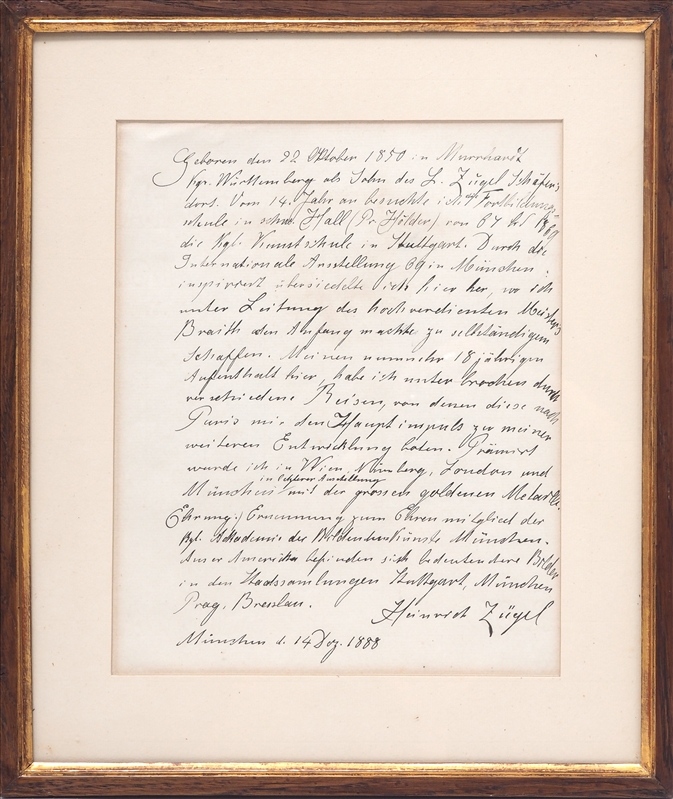 Geboren den 22 Oktober 1850 in Murrhardt
Kgr. Württemberg als Sohn des L. Zügel Schäferei
dort. Vom 14. Jahr an besuchte ich d. Fortbildungs-
schule in schw. Hall (Pr. Hölder) von 67 bis 1869
die Kgl. Kunstschule in Stuttgart. Durch die
Internationale Ausstellung 69 in München
inspirirt übersiedelte ich hier her, wo ich
unter Leitung des hochverdienten Meisters
Braith den Anfang machte zu selbständigem
Schaffen. Meinen nunmehr 18 jährigen
Aufenthalt hier, habe ich unter brochen durch
verschiedene Reisen, von denen diese nach
Paris mir den Hauptimpuls zu meiner
weiteren Entwicklung boten. Prämirt
wurde ich in Wien, Nürnberg, London und
in letzterer Ausstellung
München mit der grossen goldenen Medaille.
Ehrung:) Ernennung zum Ehrenmitglied der
Kgl. Akademie der Bildenden Künste München.
Auser Amerika befinden sich bedeutendere Bilder
in den Staatssamlungen Stuttgart, München
Prag, Bresslau.
Heinrich Zügel
München d. 14 Dez. 1888